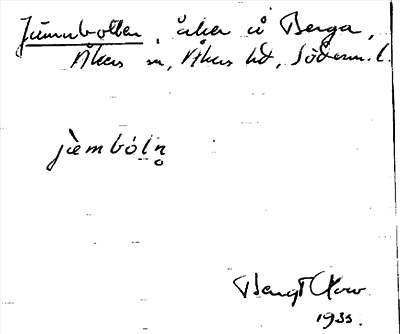 Jämnbotten, åker å Berga,
Åkers sn, Åkers hd, Söderm. l.
jèmbótn̥
Bengt
1935.